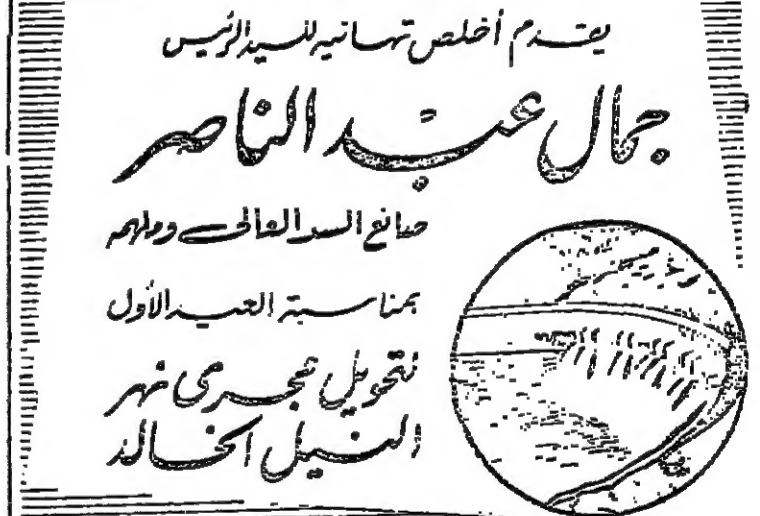 يقدم أخلص تهانيه للسيد الرئيس
جمال عبد الناصر
صانع السد العالى وملهمه
بمناسبة العيد الأول
لتحويل مجرى نهر
النيل الخالد